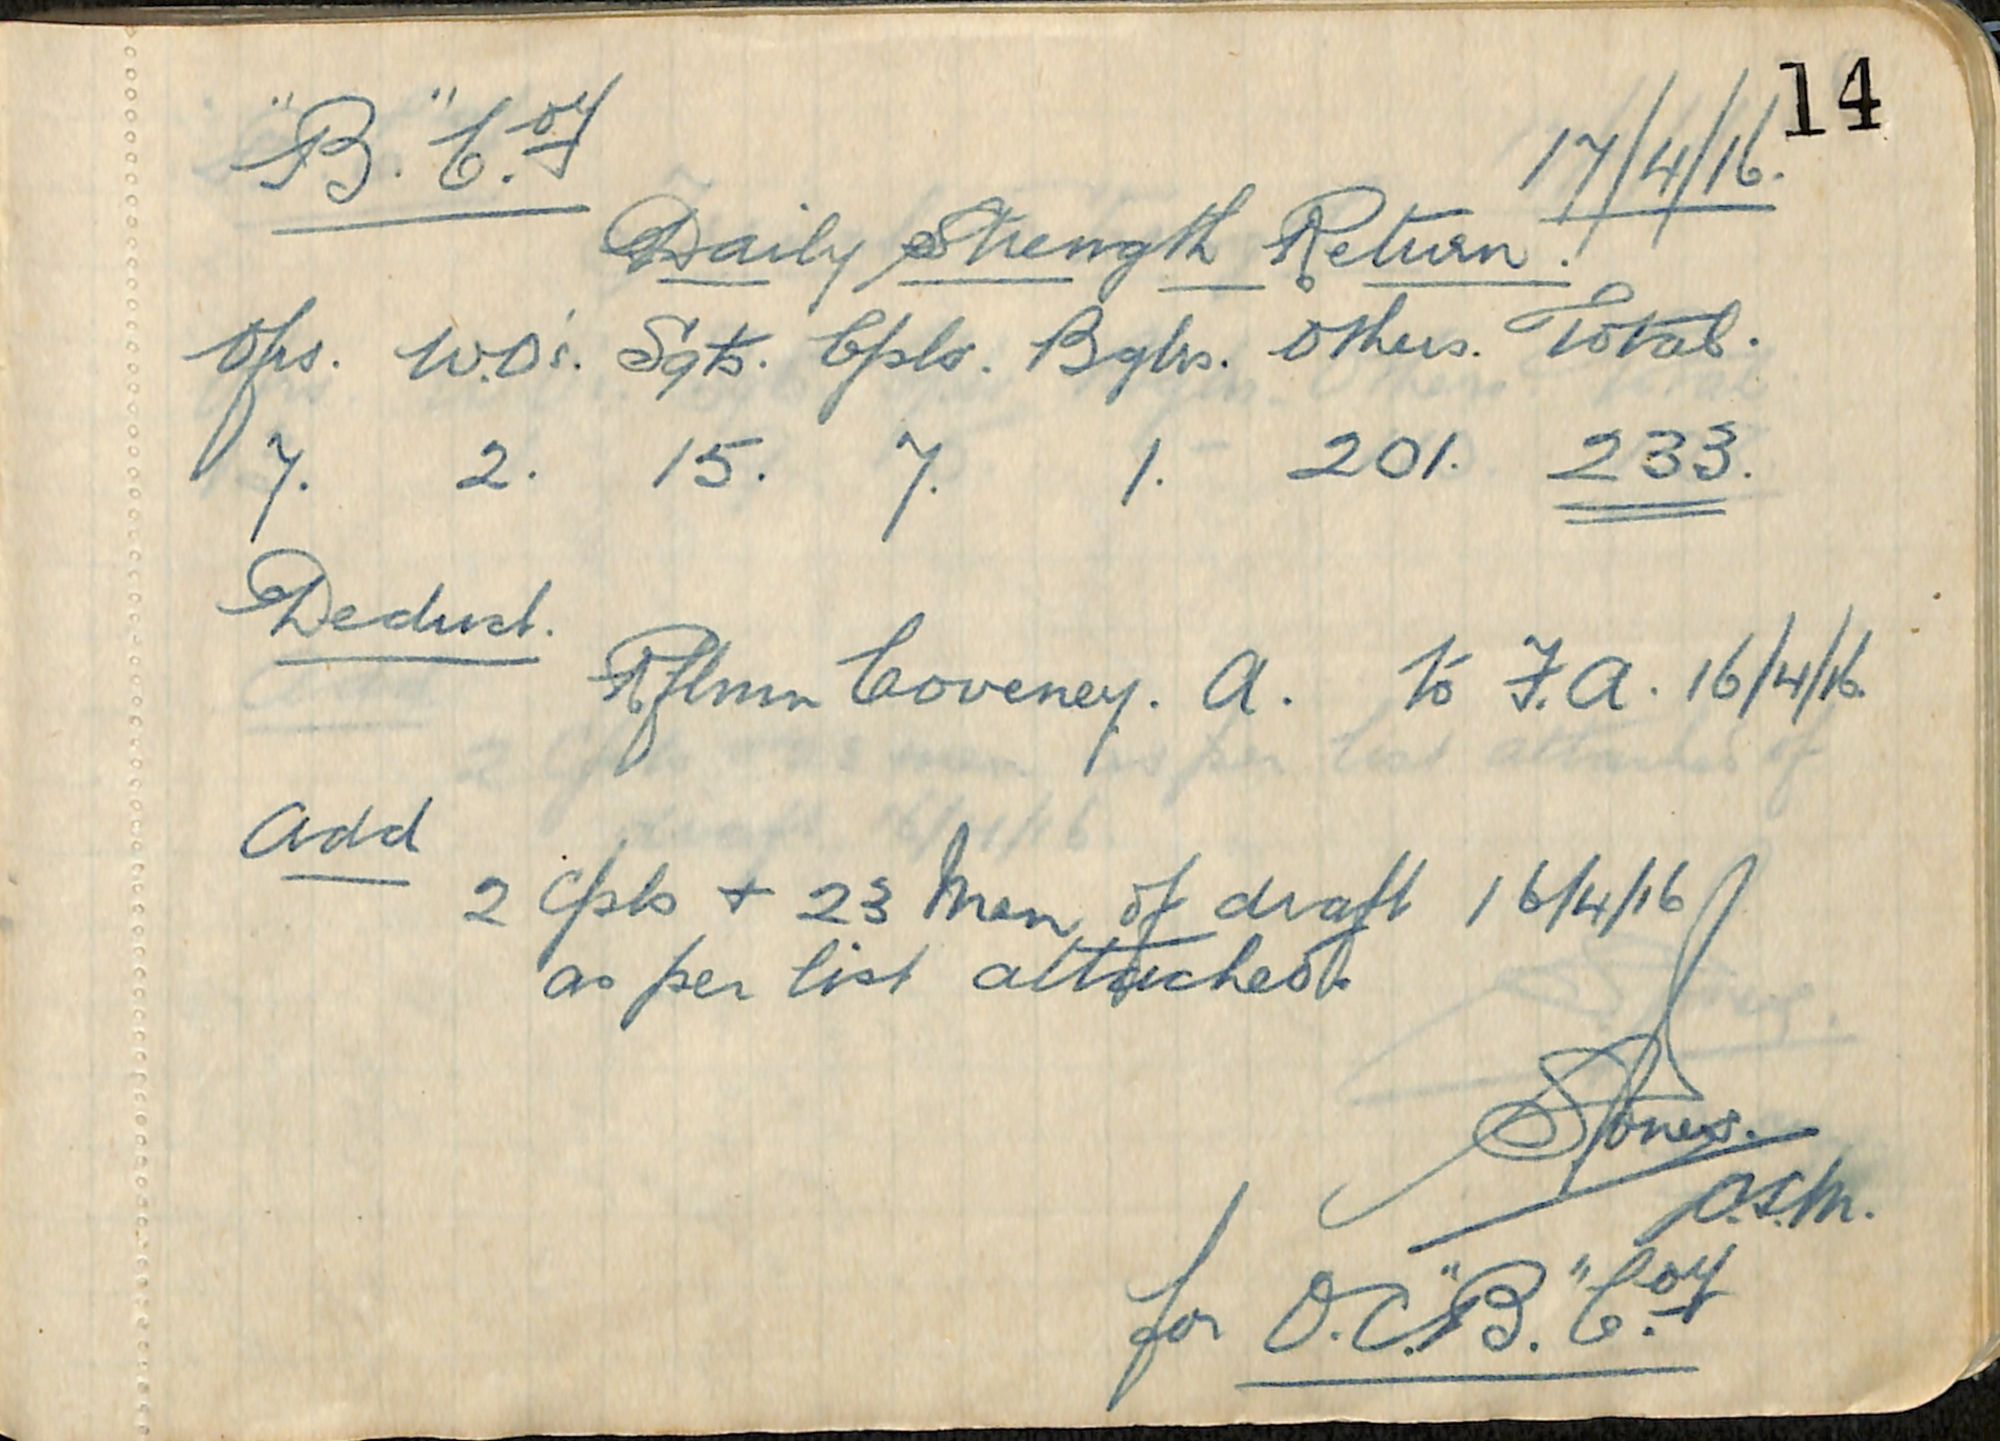 14
"B." Coy 17/4/16.
Daily Strength Return.
Ofrs. W.O's. Sgts. Cpls. Bglrs. Others. Total.
7. 2. 15. 7. 1. 201. 233.
Deduct.
Rflmn Coveney. A. to F.A. 16/4/16.
Add
2 Cpls + 23 Men of draft 16/4/16
as per list attached.
Jones.
C.S.M.
for O.C. "B." Coy